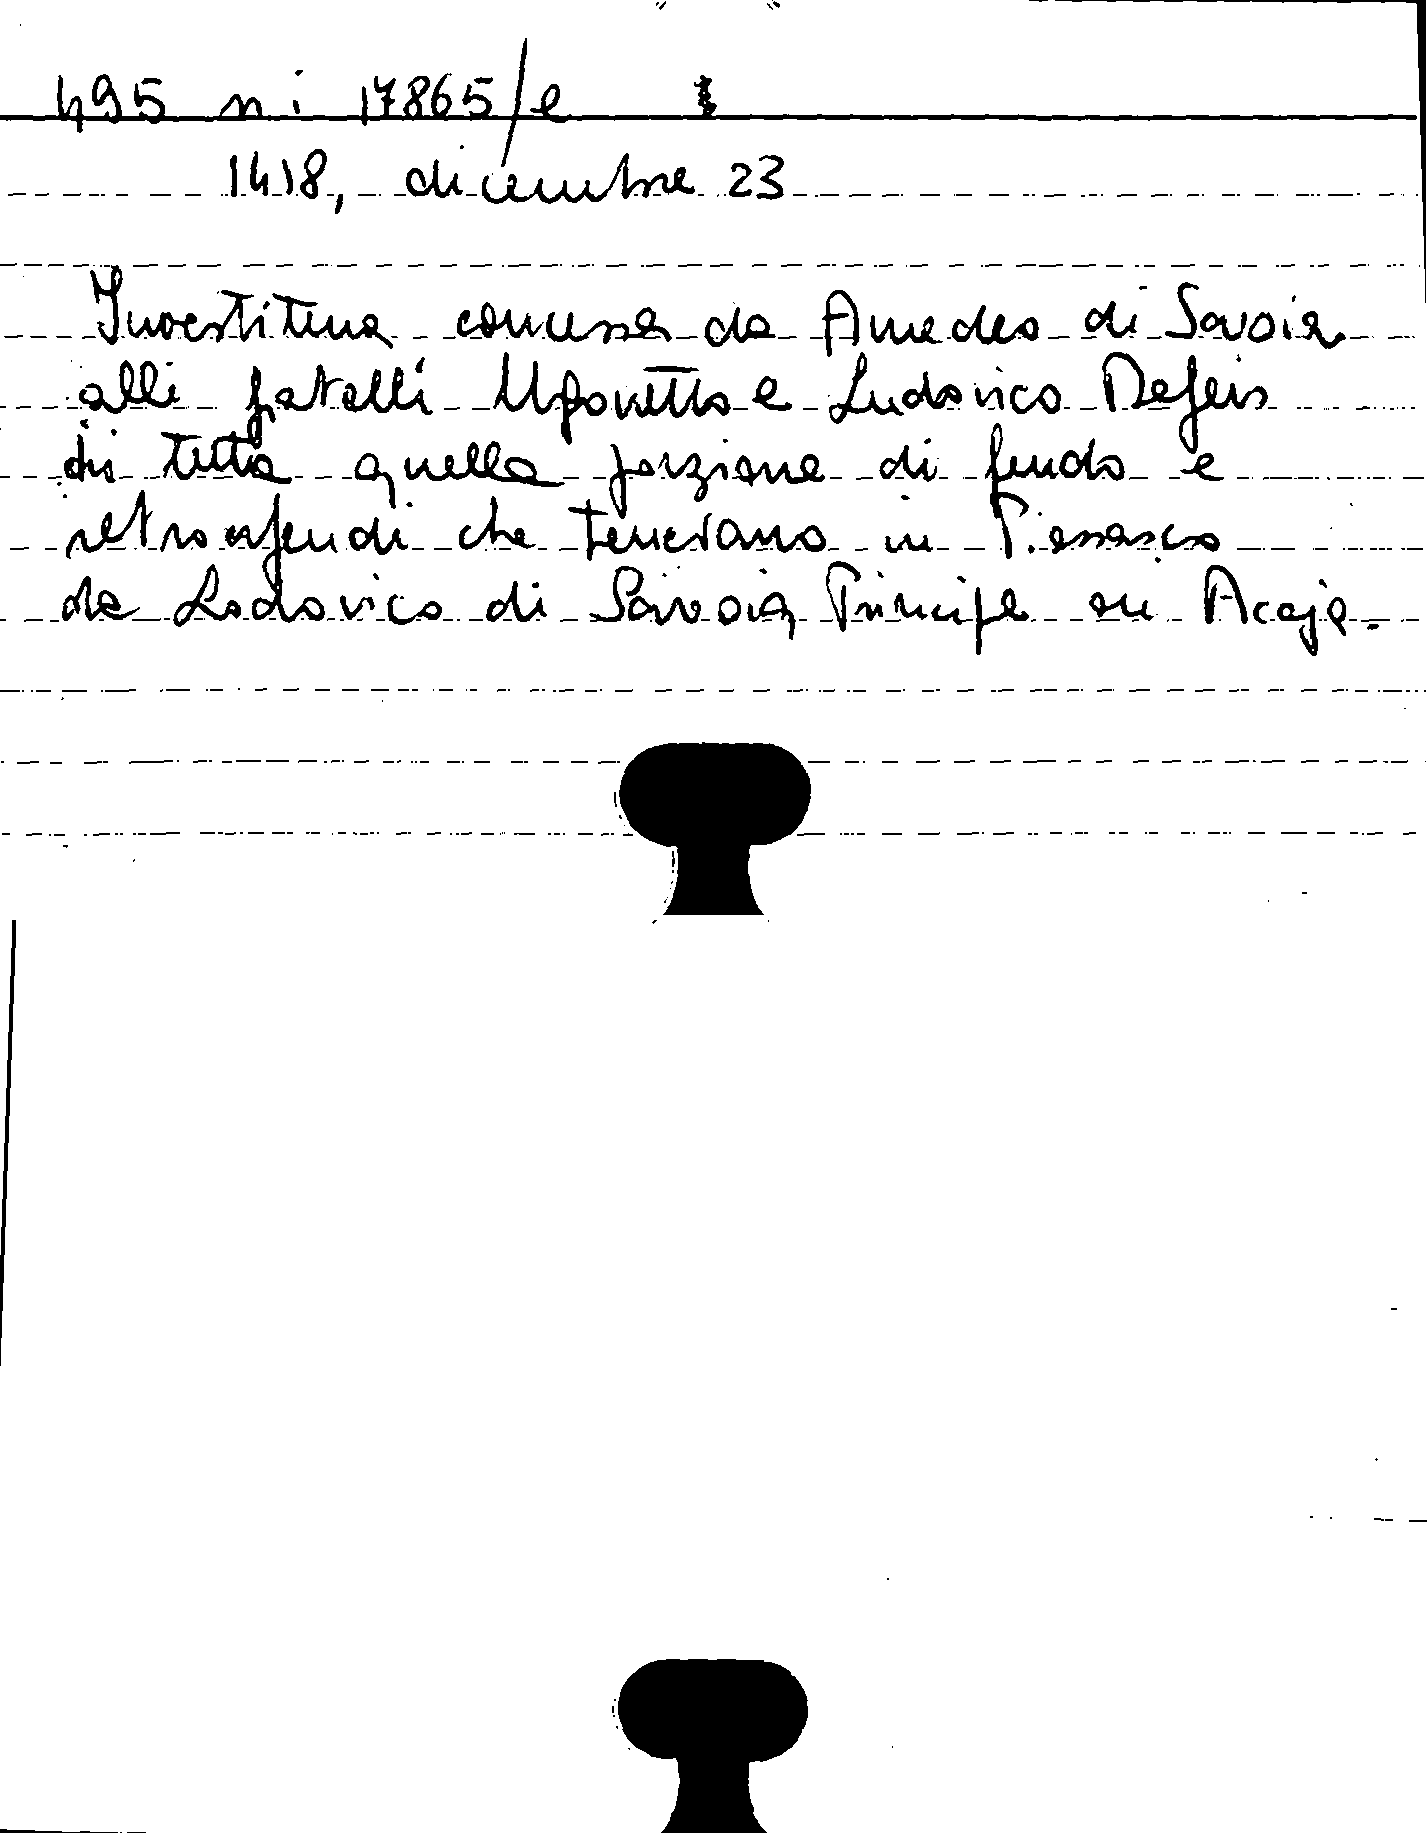 495 ni 17865/e
1418, dicembre 23
Investitura concessa da Amedeo di Savoia
alli fratelli Ugonetto e Ludovico Defeis
di tutta quella porzione di feudo e
retroafeudi che tenevano in Piossasco
da Lodovico di Savoia Principe di Acaja.